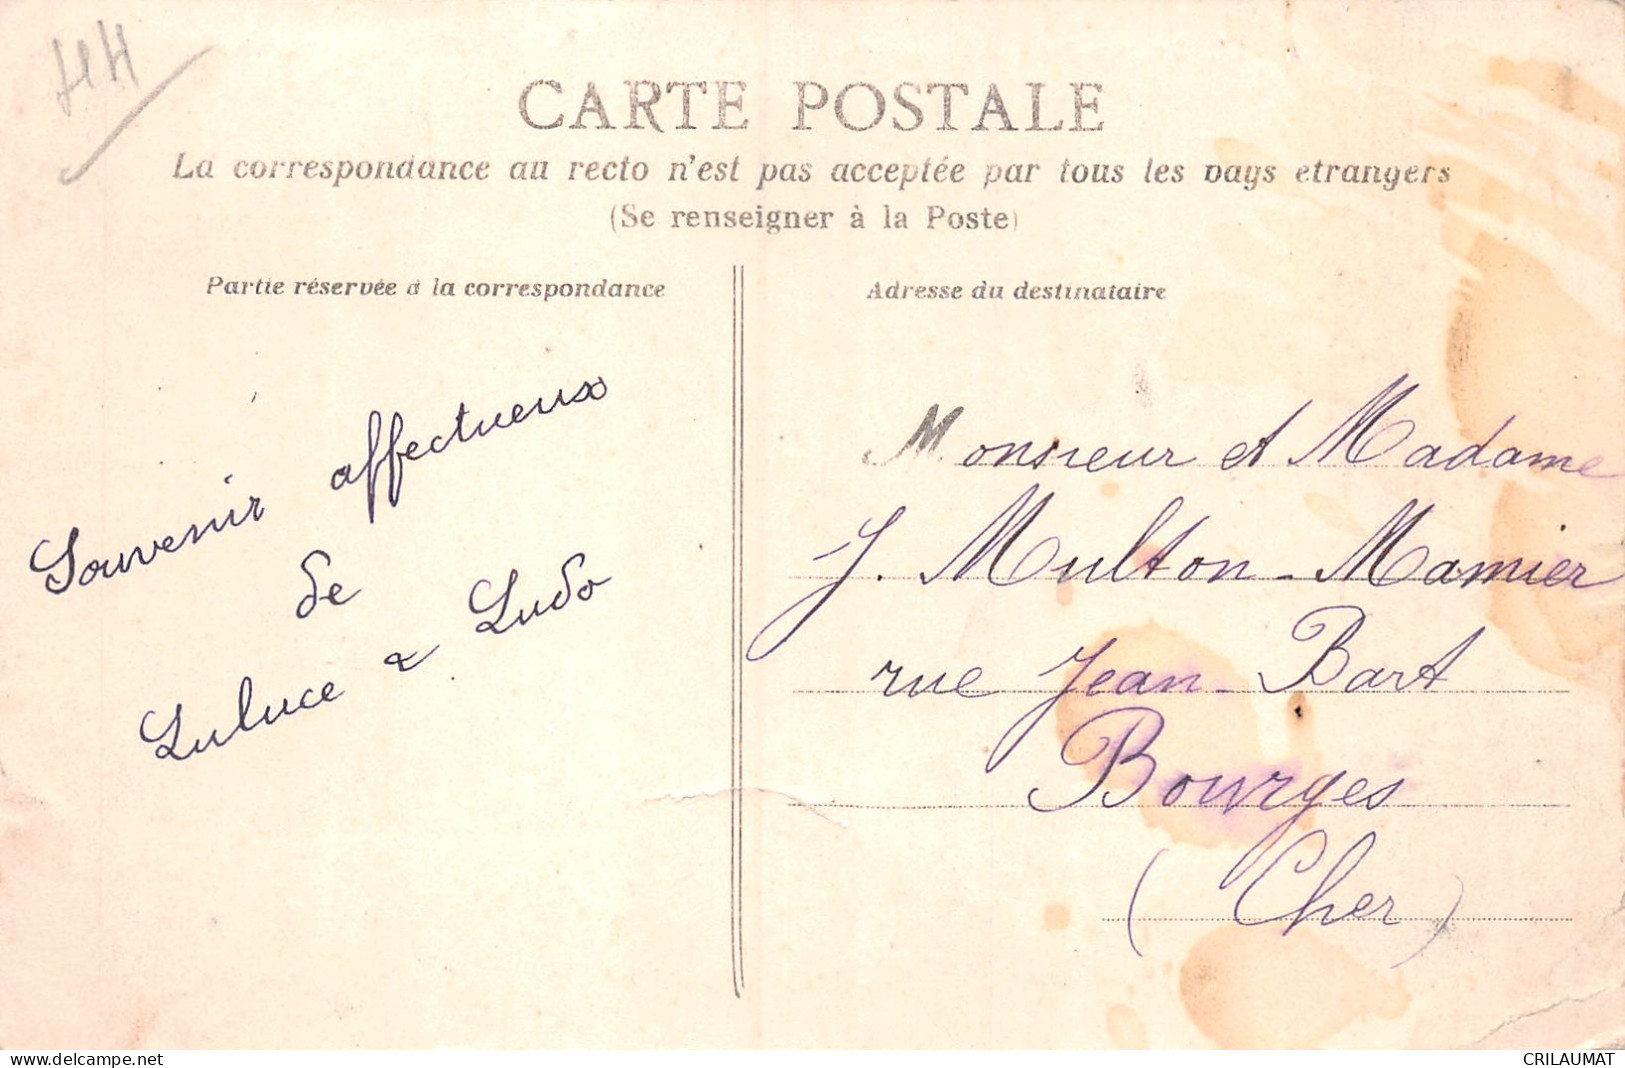 HH
CARTE POSTALE
La correspondance au recto n'est pas acceptée par tous les pays etrangers
(Se renseigner à la Poste)
Partie réservée à la correspondance
Souvenir affectueux
de
Luluce & Ludo
Adresse du destinataire
Monsieur et Madame
J. Multon-Mamier
rue Jean-Bart
Bourges
(Cher)
www.delcampe.net
CRILAUMAT